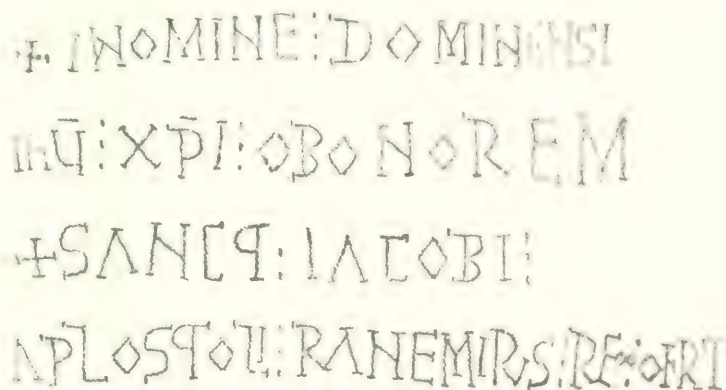 + INOMINE : DOMINENSI
IHŪ : XP̄I : OBONOREM
+ SANCꟼ : IACOBI :
APLOSꟼOLI : RANEMIRUS : REX OFRT